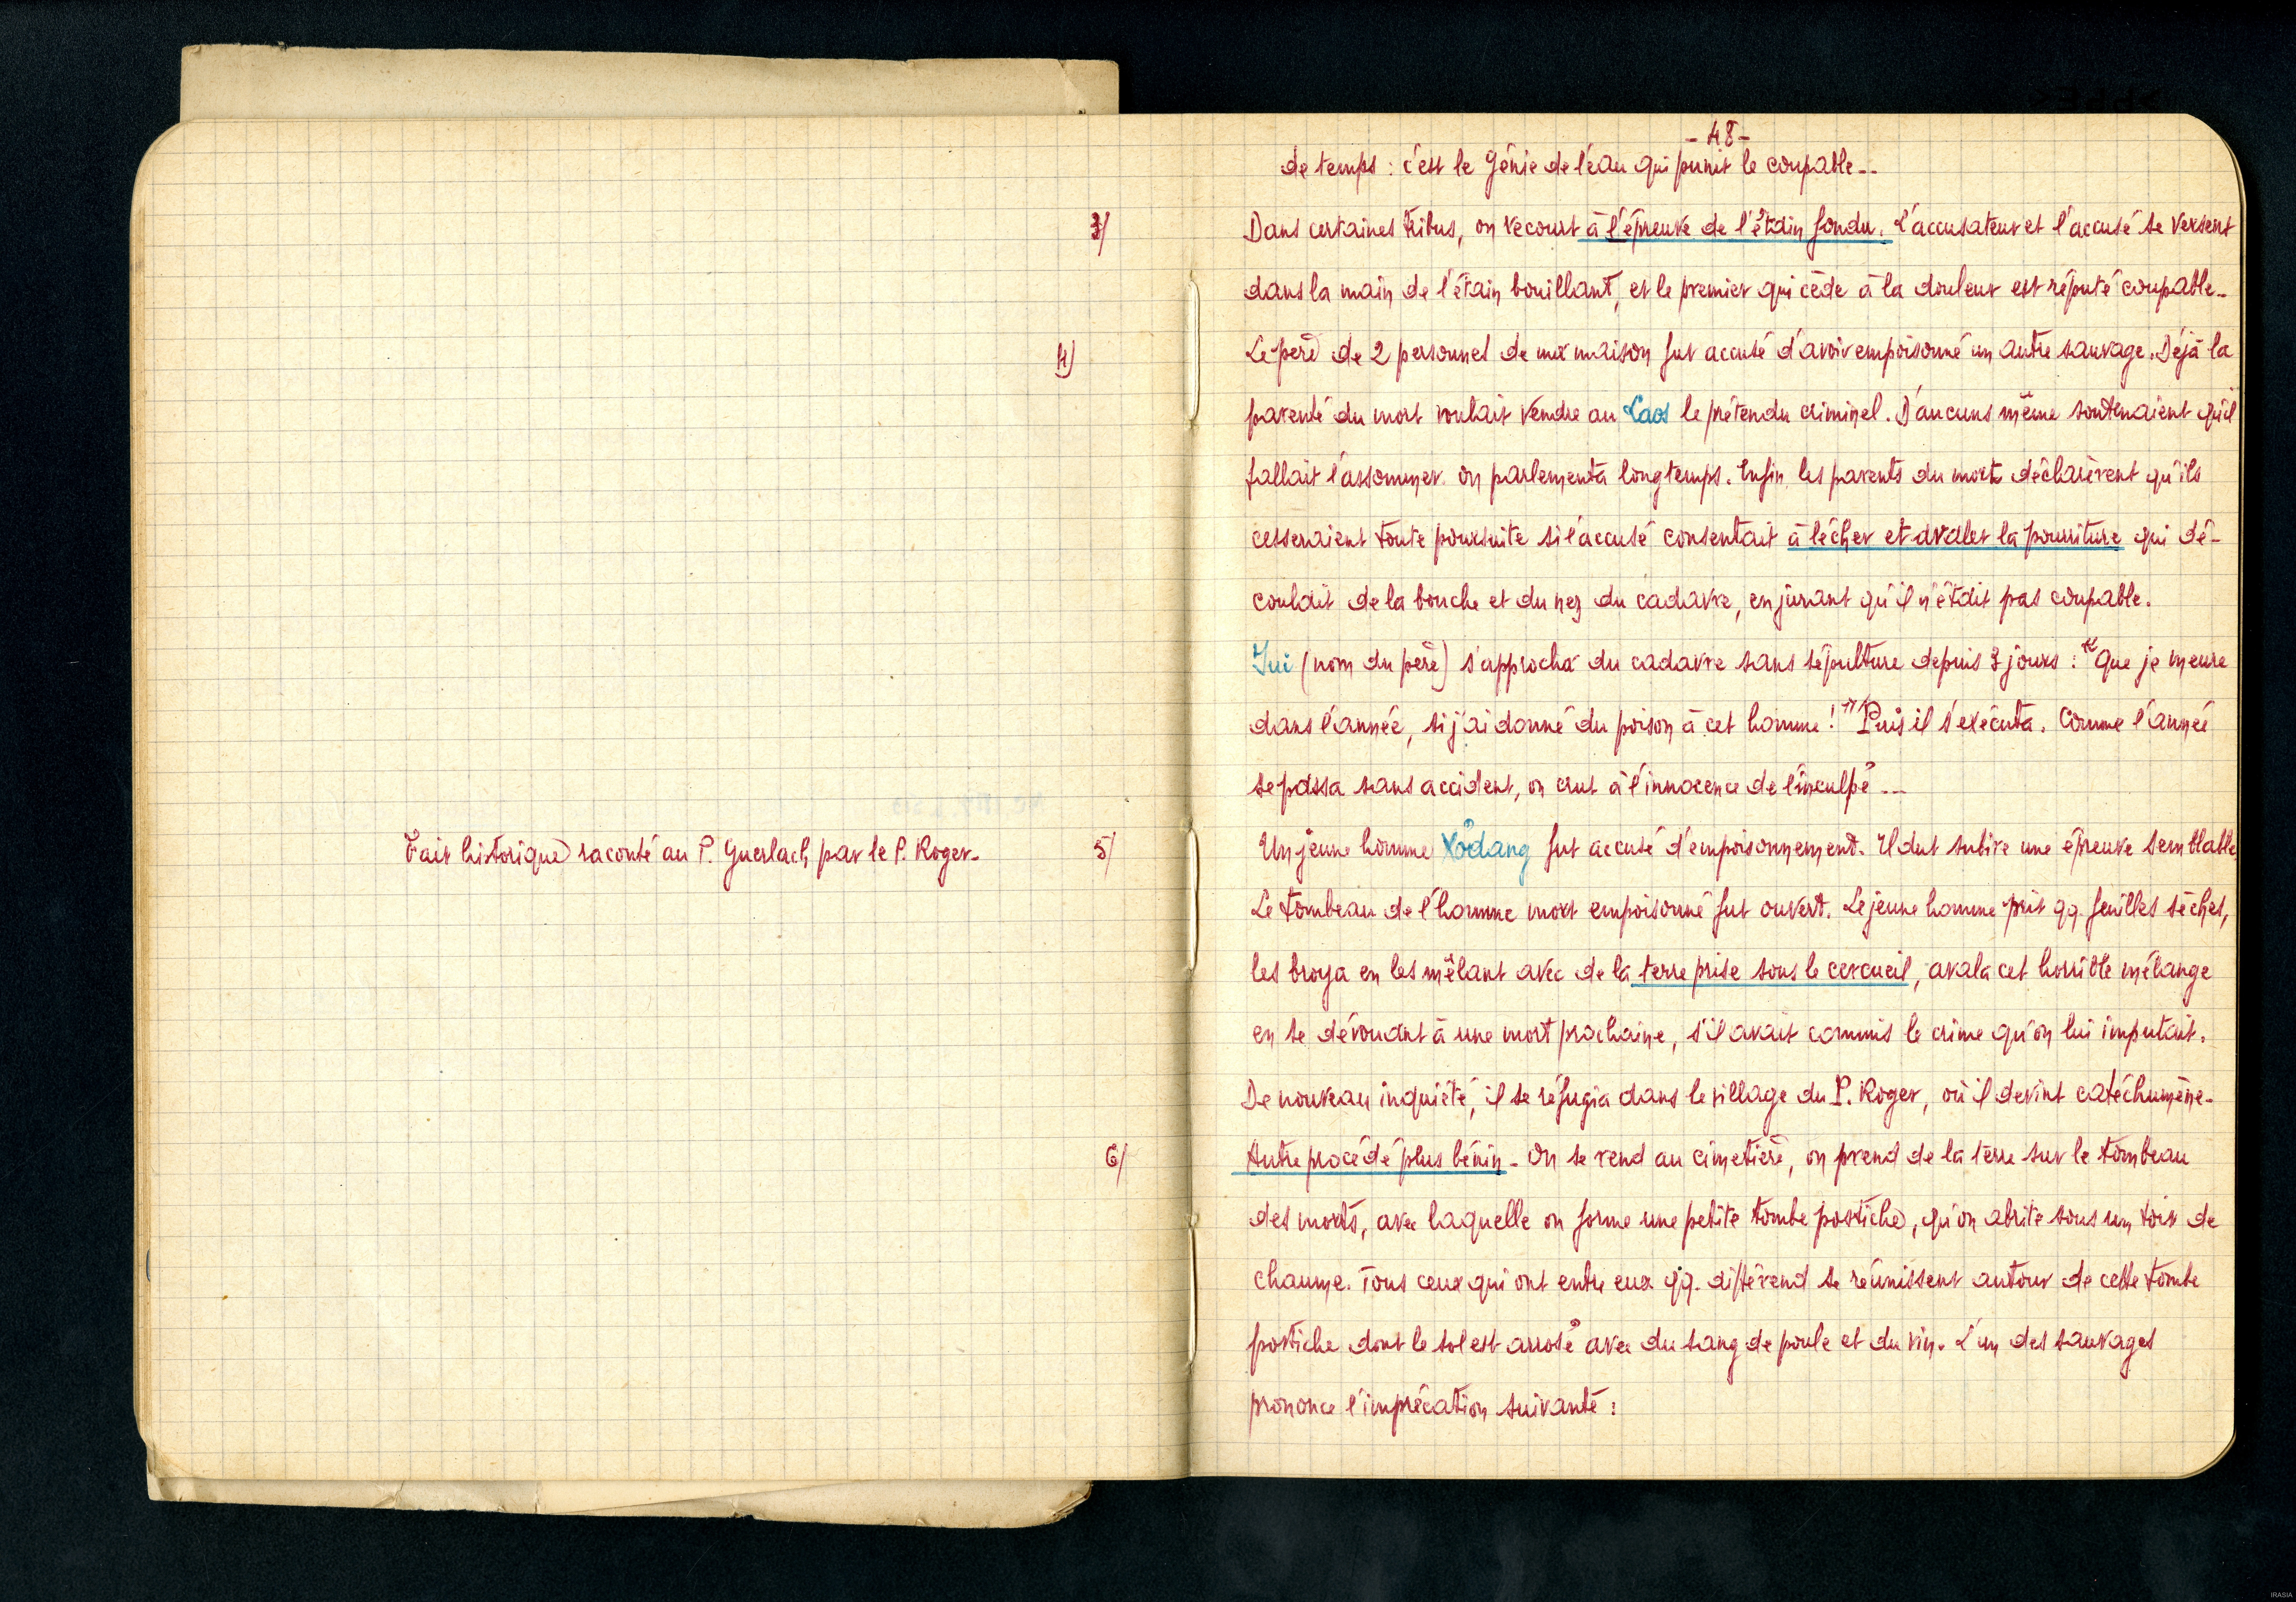 - 48 -
de temps : c'est le Génie de l'eau qui punit le coupable --
3/ Dans certaines tribus, on recourt à l'épreuve de l'étain fondu. L'accusateur et l'accusé se versent
dans la main de l'étain bouillant, et le premier qui cède à la douleur est réputé coupable -
4) Le père de 2 personnes de ma maison fut accusé d'avoir empoisonné un autre sauvage. Déjà la
parenté du mort voulait vendre au Laos le prétendu criminel. D'aucuns même soutenaient qu'il
fallait l'assommer. On parlementa longtemps. Enfin les parents du mort déclarèrent qu'ils
cesseraient toute poursuite si l'accusé consentait à lécher et avaler la pourriture qui dé-
coulait de la bouche et du nez du cadavre, en jurant qu'il n'était pas coupable.
Jui (nom du père) s'approcha du cadavre sans sépulture depuis 3 jours : "Que je meure
dans l'année, si j'ai donné du poison à cet homme !" Puis il s'exécuta. Comme l'année
se passa sans accident, on crut à l'innocence de l'inculpé ---
Fait historique raconté au P. Guerlach par le P. Roger -
5/ Un jeune homme Xơdang fut accusé d'empoisonnement. Il dut subire une épreuve semblable.
Le tombeau de l'homme mort empoisonné fut ouvert. Le jeune homme prit qq. feuilles sèches,
les broya en les mêlant avec de la terre prise sous le cercueil, avala cet horrible mélange
en se dévouant à une mort prochaine, s'il avait commis le crime qu'on lui imputait.
De nouveau inquiété, il se réfugia dans le village du P. Roger, où il devint catéchumène -
6/ Autre procédé plus bénin - On se rend au cimetière, on prend de la terre sur le tombeau
des morts, avec laquelle on forme une petite tombe postiche, qu'on abrite sous un toit de
chaume. Tous ceux qui ont entre eux qq. différend se réunissent autour de cette tombe
postiche dont le sol est arrosé avec du sang de poule et du vin. L'un des sauvages
prononce l'imprécation suivante :
IRASIA